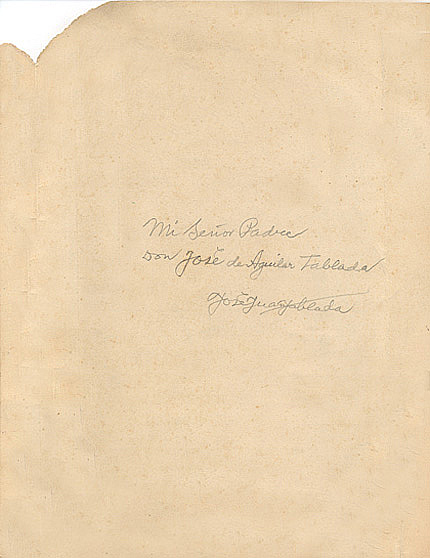 Mi Señor Padre
Don José de Aguilar Tablada
José Juan Tablada